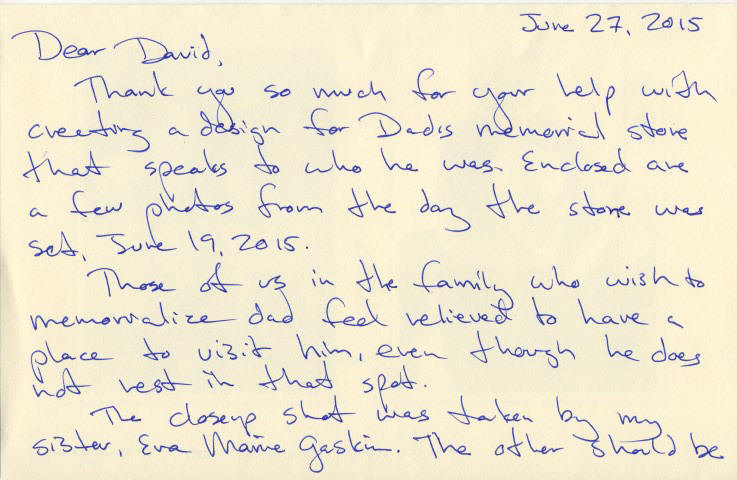 June 27, 2015
Dear David,
Thank you so much for your help with
creating a design for Dad's memorial stone
that speaks to who he was. Enclosed are
a few photos from the day the stone was
set, June 19, 2015.
Those of us in the family who wish to
memorialize dad feel relieved to have a
place to visit him, even though he does
not rest in that spot.
The closeup shot was taken by my
sister, Eva Maine Gaskin. The other should be